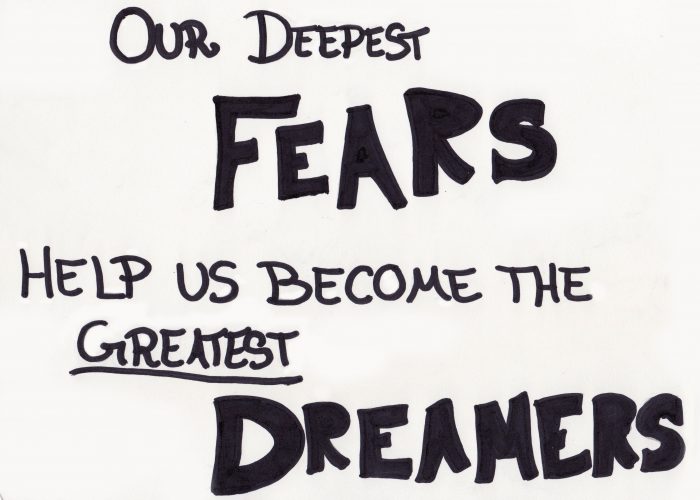 OUR DEEPEST
FEARS
HELP US BECOME THE
GREATEST
DREAMERS